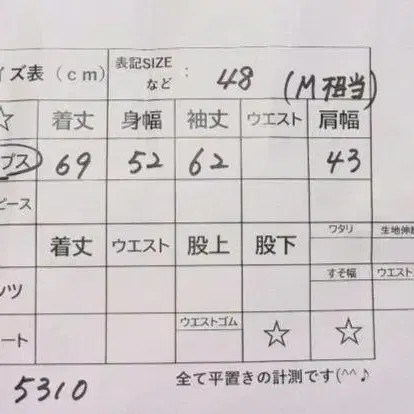 イズ表（cm） 表記SIZE など : 48 (M相当)
☆ 着丈 身幅 袖丈 ウエスト 肩幅
プス 69 52 62 43
ピース
着丈 ウエスト 股上 股下 ワタリ 生地伸
ンツ すそ幅 ウエスト
ート ウエストゴム ☆ ☆
5310 全て平置きの計測です(^^♪